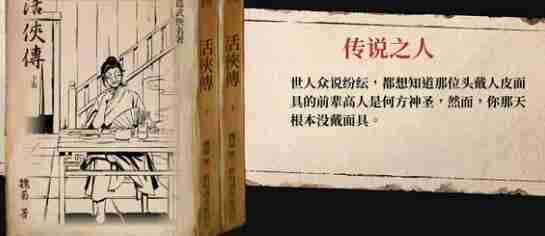 活俠傳
下部
魏菊 著
武俠名著
活俠傳
下
活俠傳
传说之人
世人众说纷纭，都想知道那位头戴人皮面
具的前辈高人是何方神圣，然而，你那天
根本没戴面具。